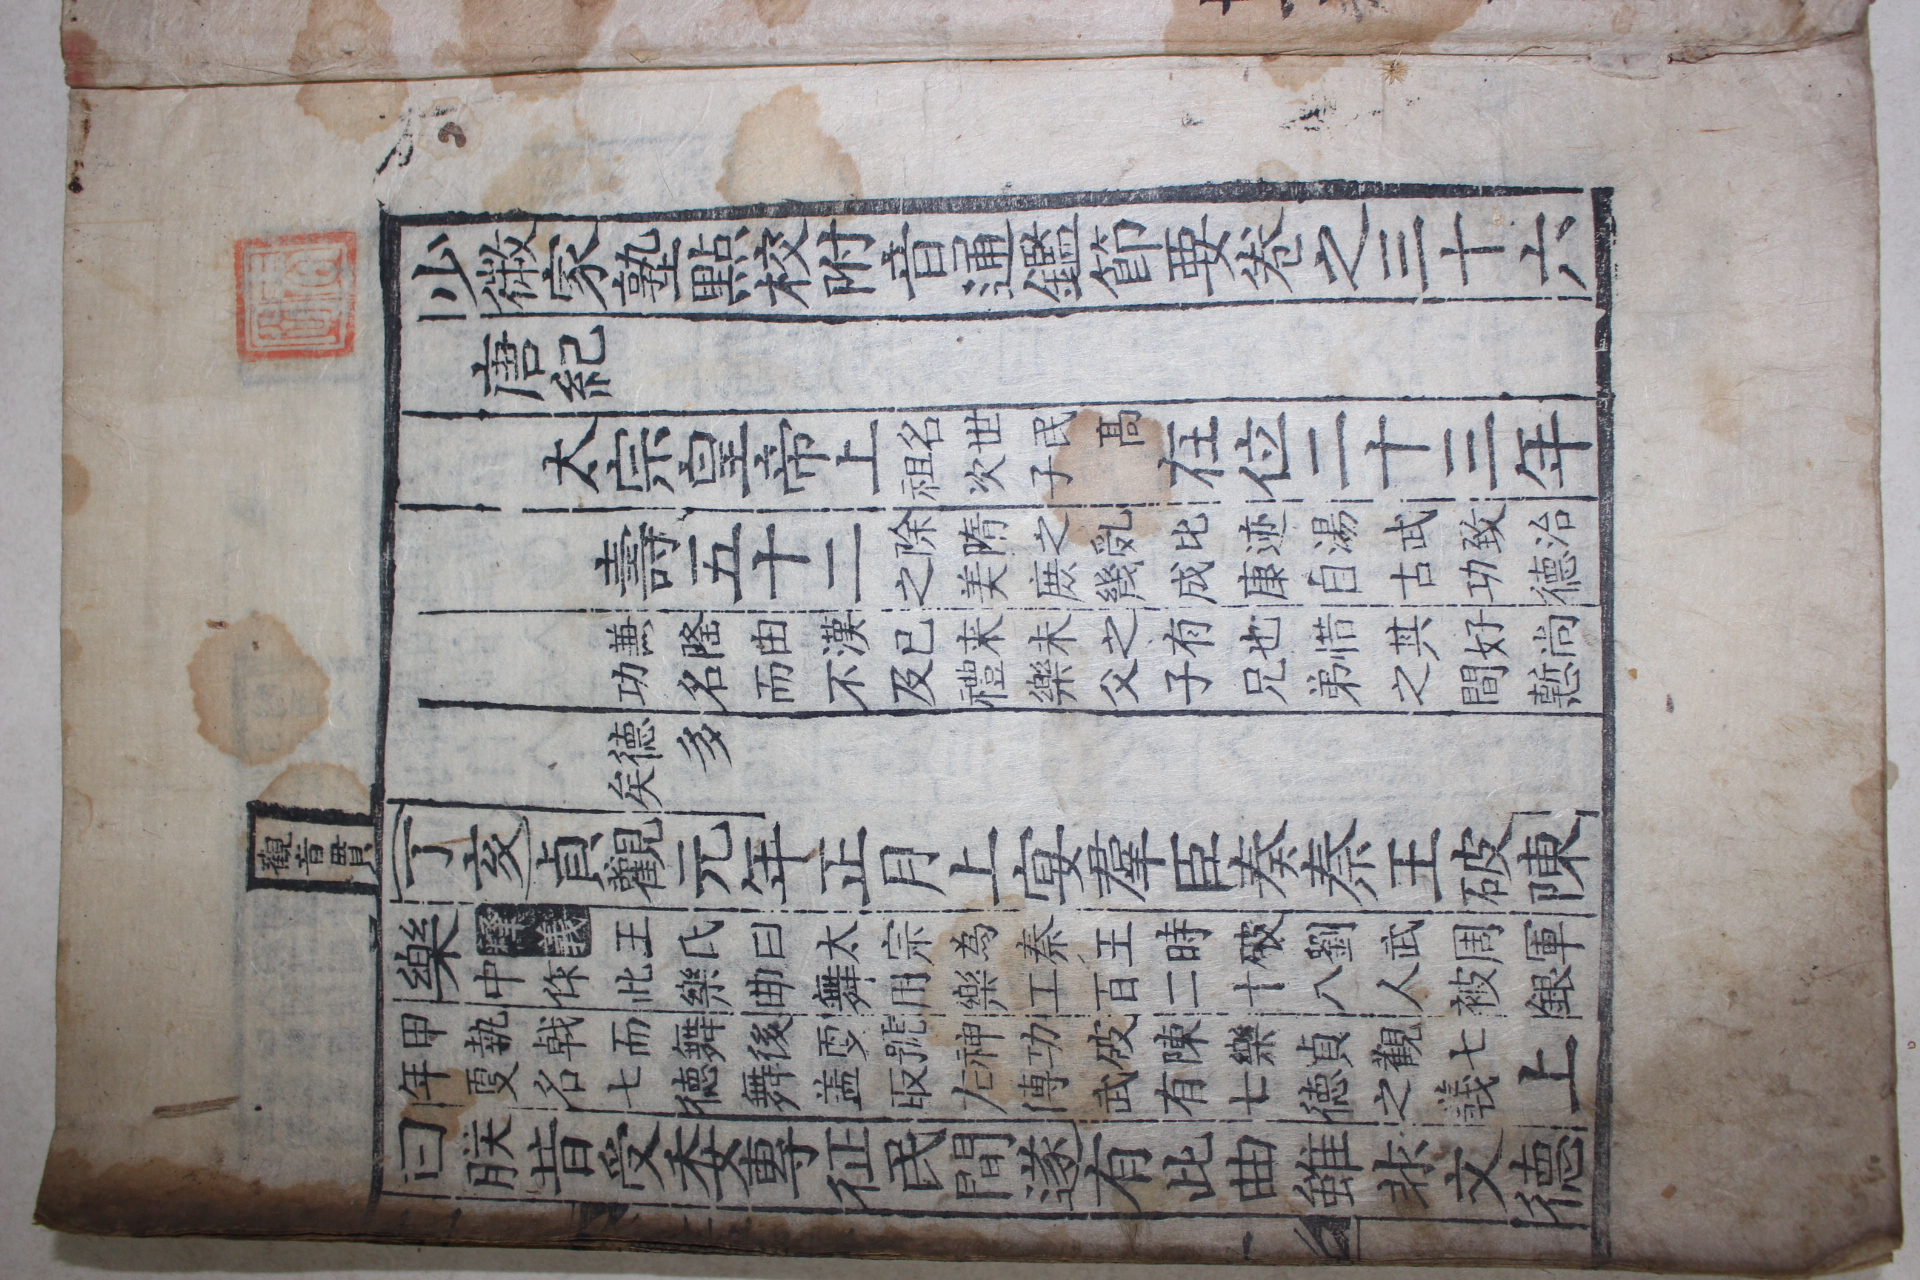 少微家塾點校附音通鑑節要卷之三十六
唐紀
太宗皇帝上名世民高祖次子在位二十三年
壽五十二除隋之乱比迹湯武致治之美庶幾成康自古功德
兼隆由漢已来未之有也惜其好尚功名而不及禮樂父子兄弟之間慙
德多矣
觀音貫
丁亥貞觀元年正月上宴羣臣奏秦王破陳
樂釋義王氏曰太宗為秦王時破劉武周軍中作此樂曲舞用樂工百二十八人被銀
甲執戟而舞後更號神功破陳樂貞觀七年更名七德舞盖取左傳武有七德之義上
曰朕昔受委專征民間遂有此曲雖非文德